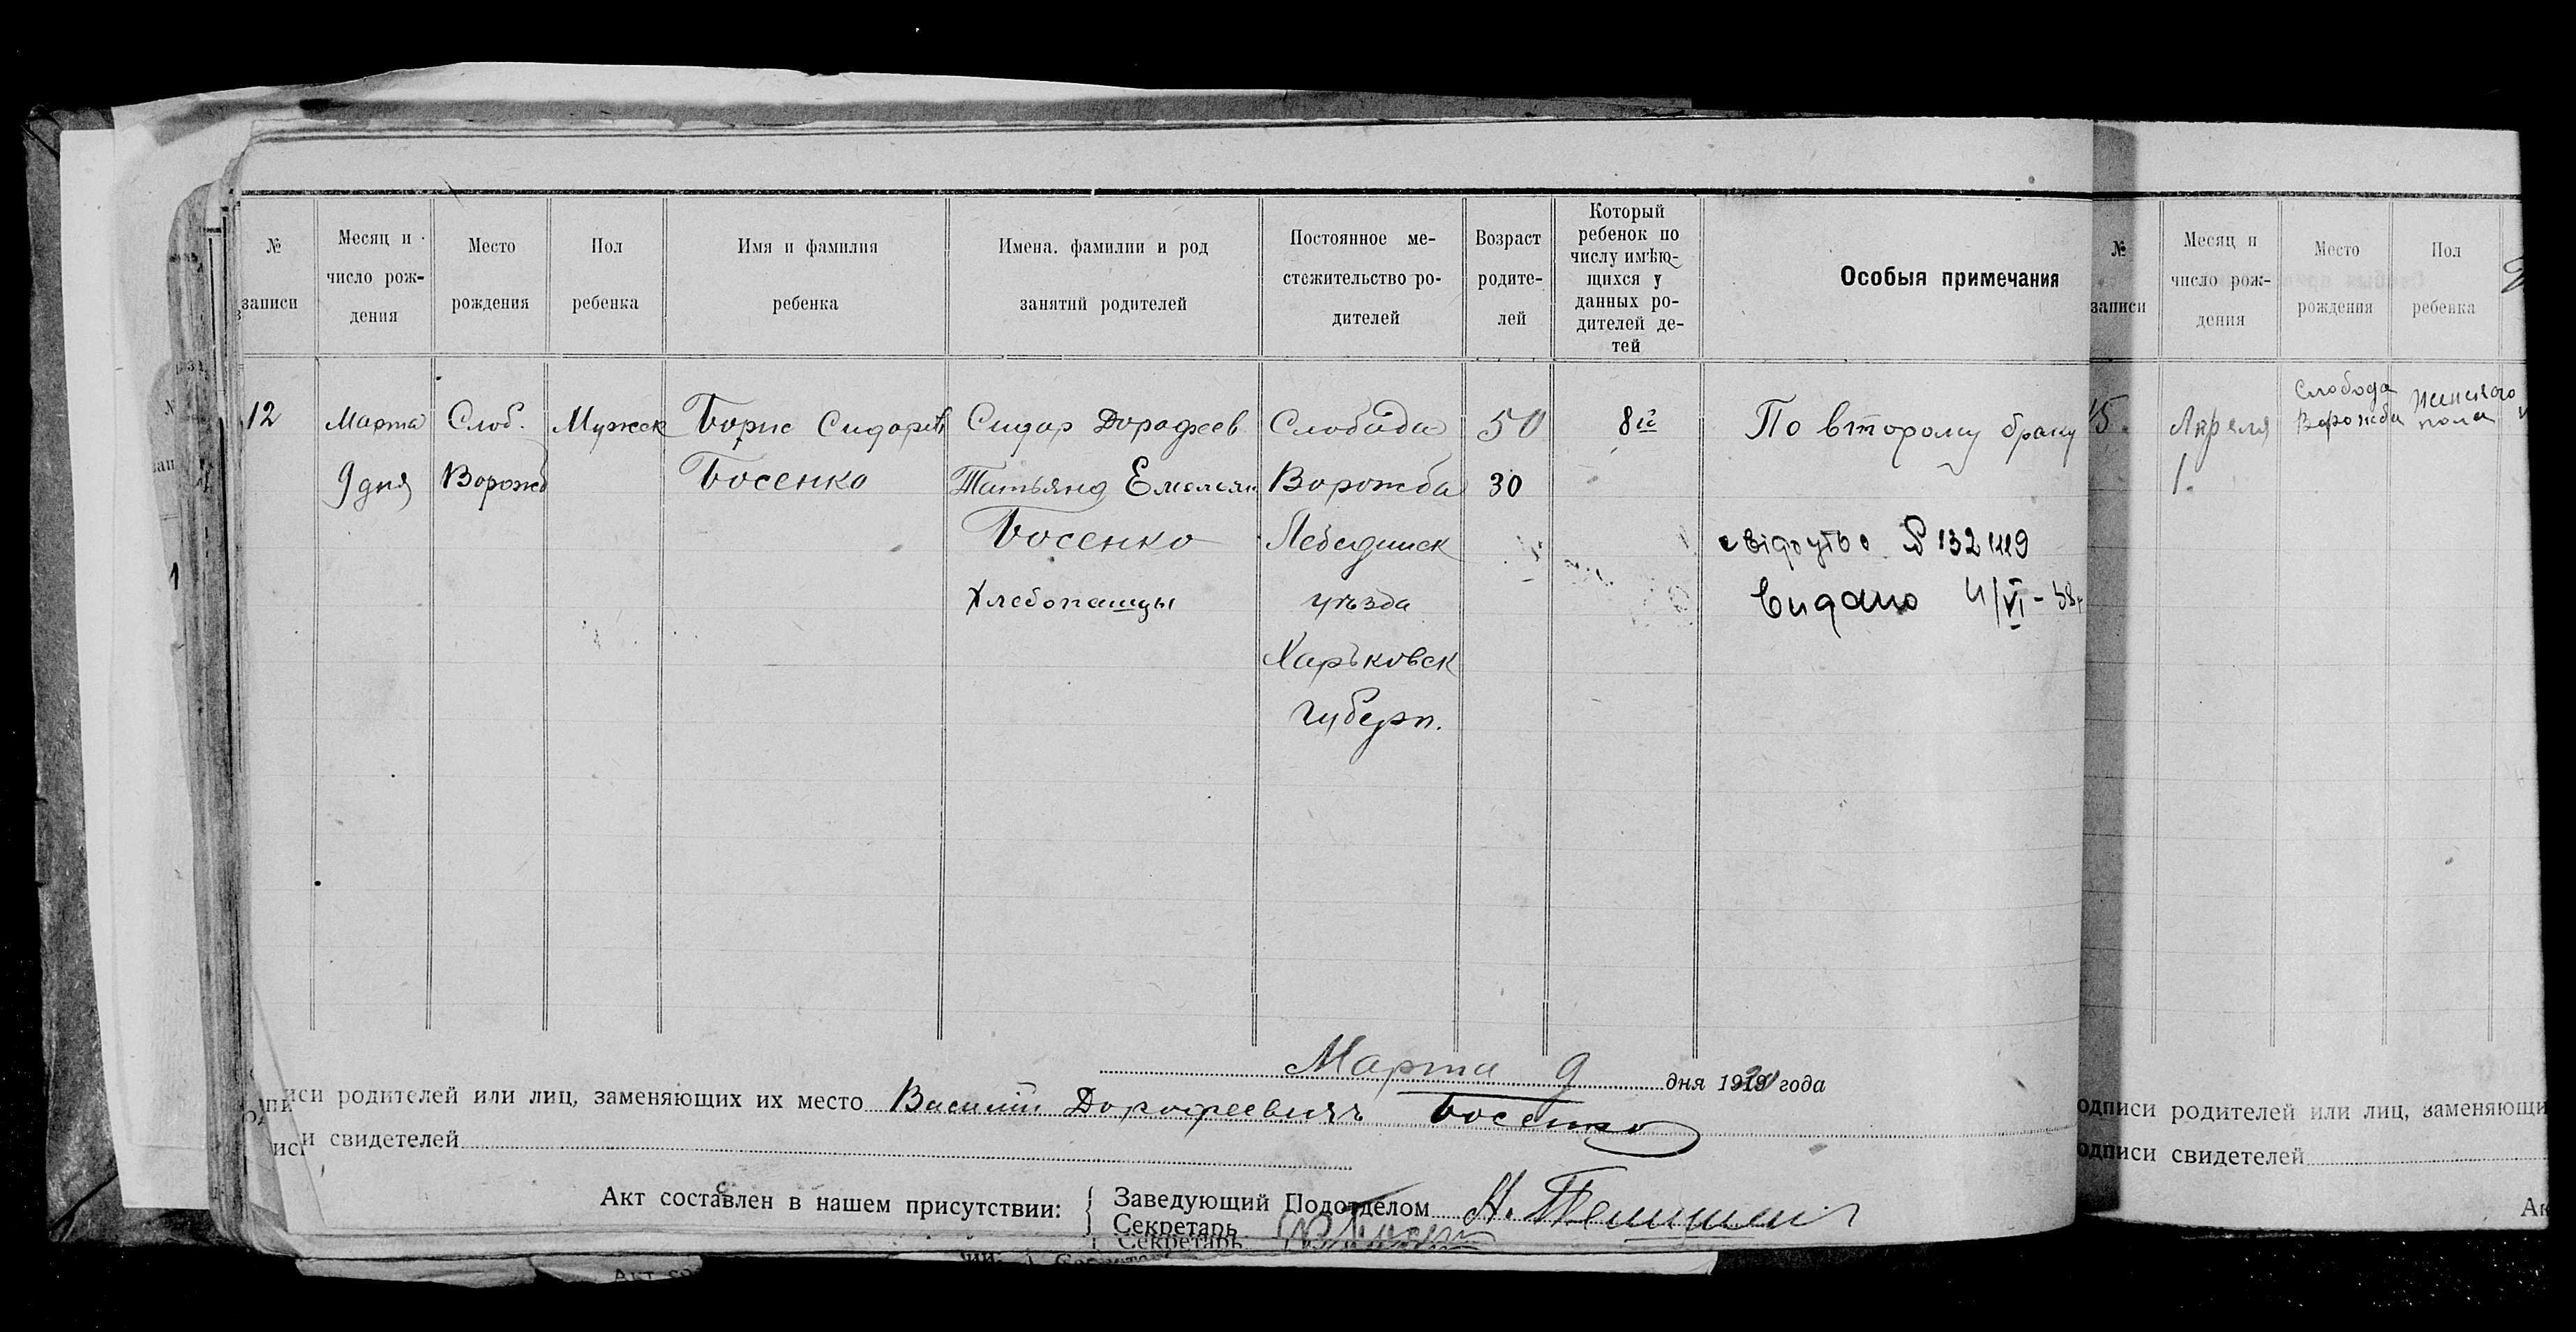 № записи
Месяц и число рождения
Место рождения
Пол ребенка
Имя и фамилия ребенка
Имена. фамилии и род занятий родителей
Постоянное местежительство родителей
Возраст родителей
Который ребенок по числу имѣющихся у данных родителей детей
Особыя примечания
12
Марта
9 дня
Слоб.
Ворожб
Мужск
Борис Сидоров
Босенко
Сидор Дорофеев
Татьяна Емельян
Босенко
Хлебопашцы
Слобода
Ворожба
Лебединск
уѣзда
Харьковск
губерн.
50
30
8й
По второму браку
свідоцтво
Видано
Марта 9 дня 1920 года
иси родителей или лиц, заменяющих их место Василий Дорофеевичъ Босенко
и свидетелей
Акт составлен в нашем присутствии:
Заведующий Подотделом
Секретарь
Секретарь
№ записи
Месяц и число рождения
Место рождения
Пол ребенка
15
Апреля
1.
Слобода
Ворожба
Женского
пола
одписи родителей или лиц, заменяющи
одписи свидетелей
Ак